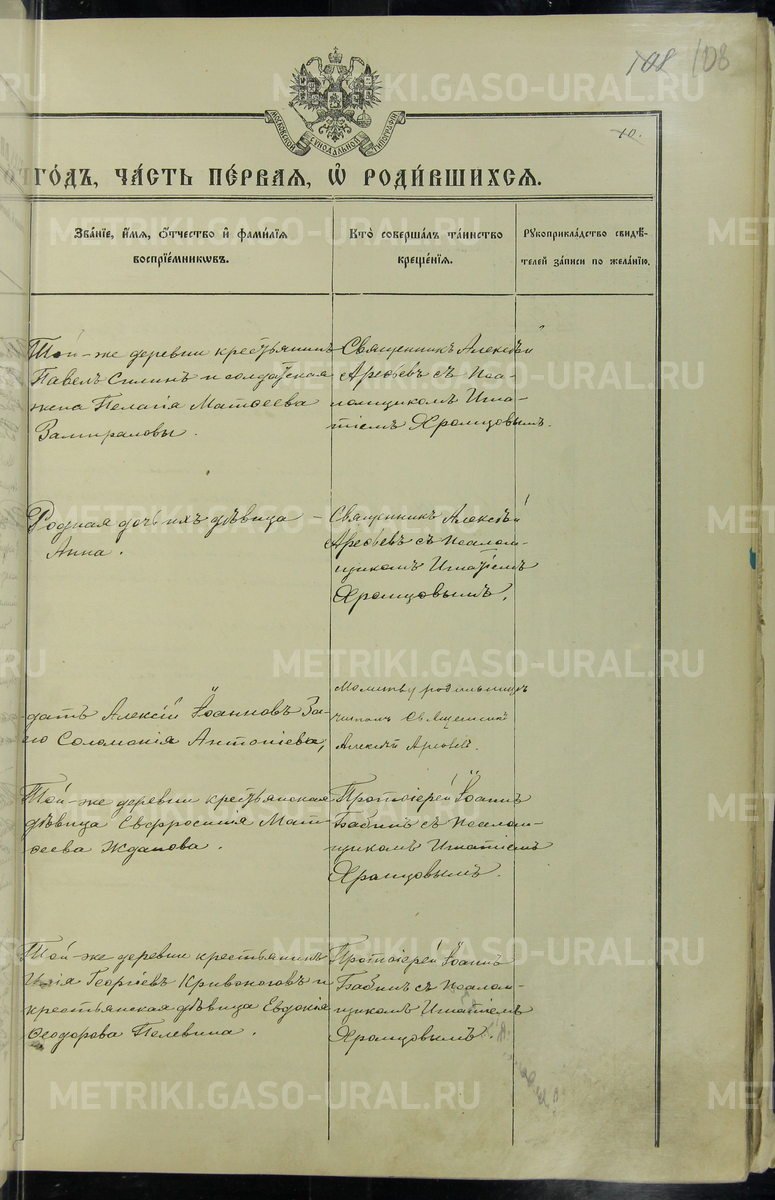 108 108
МОСКОВСКОЙ СѴНОДАЛЬНОЙ ТИПОГРАФІИ
10.
ГО́ДЪ, ЧА́СТЬ ПЕ́РВАЯ, Ѽ РОДИ́ВШИХСЯ.
Зва́нїе, и҆́мя, ѻ҆́тчество и҆ фами́лїя
воспрїе́мникѡвъ.
Кто̀ соверша́лъ та́инство
креще́нїя.
Рꙋкоприкла́дство свидѣ́-
телей за́писи по жела́нїю.
Той-же деревни крестьянинъ
Павелъ Силинъ и солдатская
жена Пелагія Матѳеева
Замираловы.
Священникъ Алексѣй
Арефьевъ съ Пса-
ломщикомъ Игна-
тіемъ Хромцовымъ.
Родная дочь ихъ дѣвица
Анна.
Священникъ Алексѣй
Арефьевъ съ Псалом-
щикомъ Игнатіемъ
Хромцовымъ.
датъ Алексій Іоанновъ За-
его Соломонія Антоніева,
Молитву родильницѣ
читалъ Священникъ
Алексѣй Арефьев.
Той-же деревни крестьянская
дѣвица Евфросинія Мат-
ѳеева Жданова.
Протоіерей Іоаннъ
Бабинъ съ Псалом-
щикомъ Игнатіемъ
Хромцовымъ.
Той-же деревни крестьянинъ
Илія Георгіевъ Кривоноговъ и
крестьянская дѣвица Евдокія
Ѳеодорова Пелевина.
Протоіерей Іоаннъ
Бабинъ съ Псалом-
щикомъ Игнатіемъ
Хромцовымъ.
METRIKI.GASO-URAL.RU